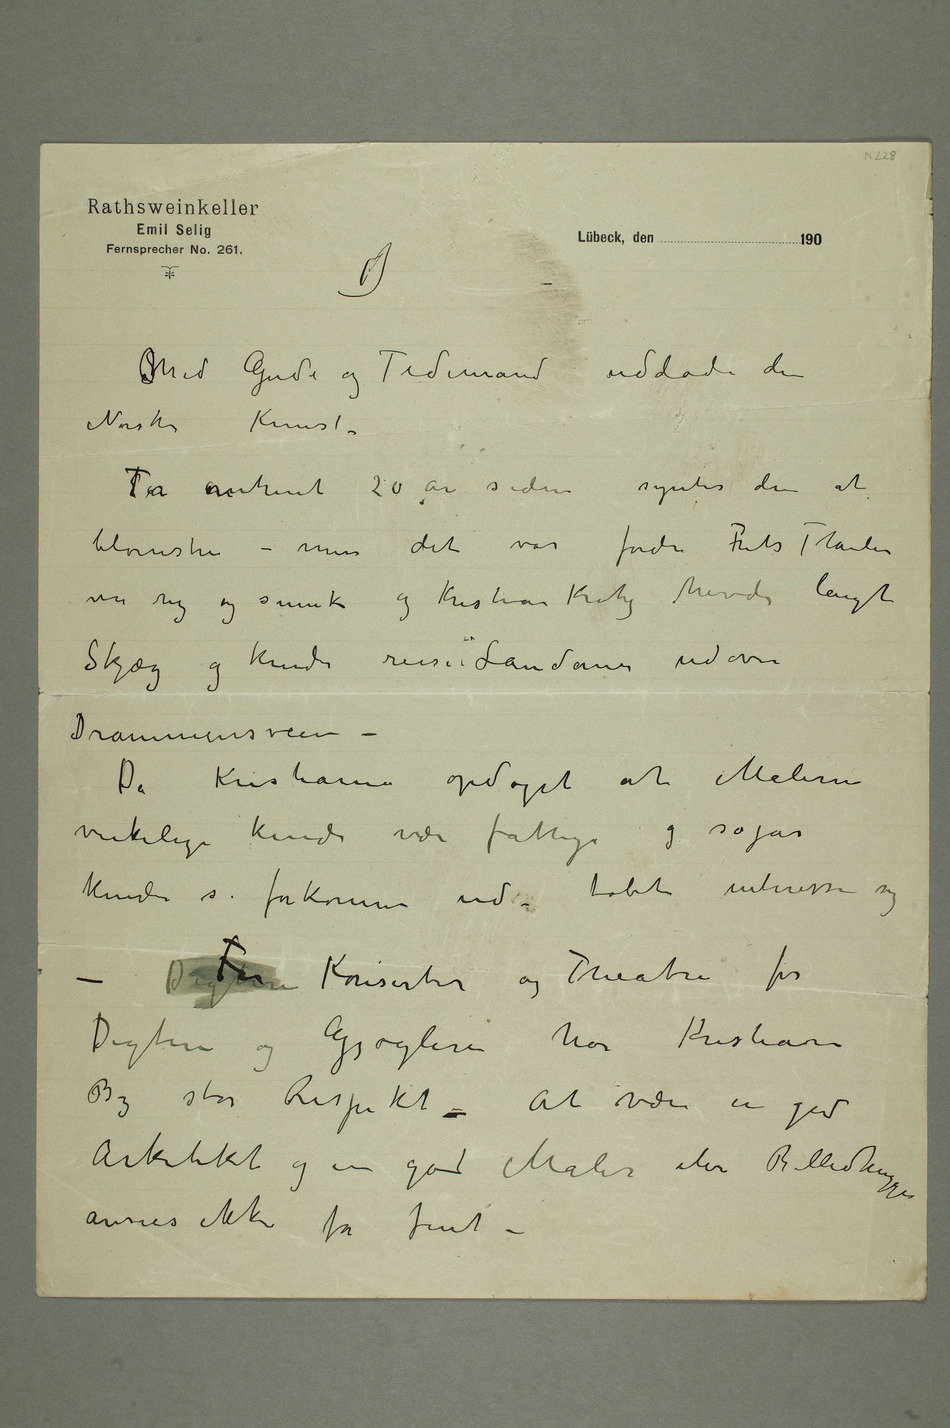 N 228
Rathsweinkeller
Emil Selig
Fernsprecher No. 261.
Lübeck, den 190
Med Gude og Tidemand uddøde den
Norske Kunst.
For omtrent 20 år siden syntes den at
blomstre – men det var fordi Frits Thaulov
var rig og smuk og Kristian Krohg havde langt
Skjæg og kunde reise i Landauer udover
Drammensveien –
Da Kristiania opdaget at Malerne
virkelige kunde være fattige og sogar
kunde se forkomne ud – tabte interessen sig
– For Konserter og Theatre for
Digtere og Gjøglere har Kristiania
By stor Respekt – At være en god
Arkitekt og en god Maler eller Billedhugger
ansees ikke for fint –